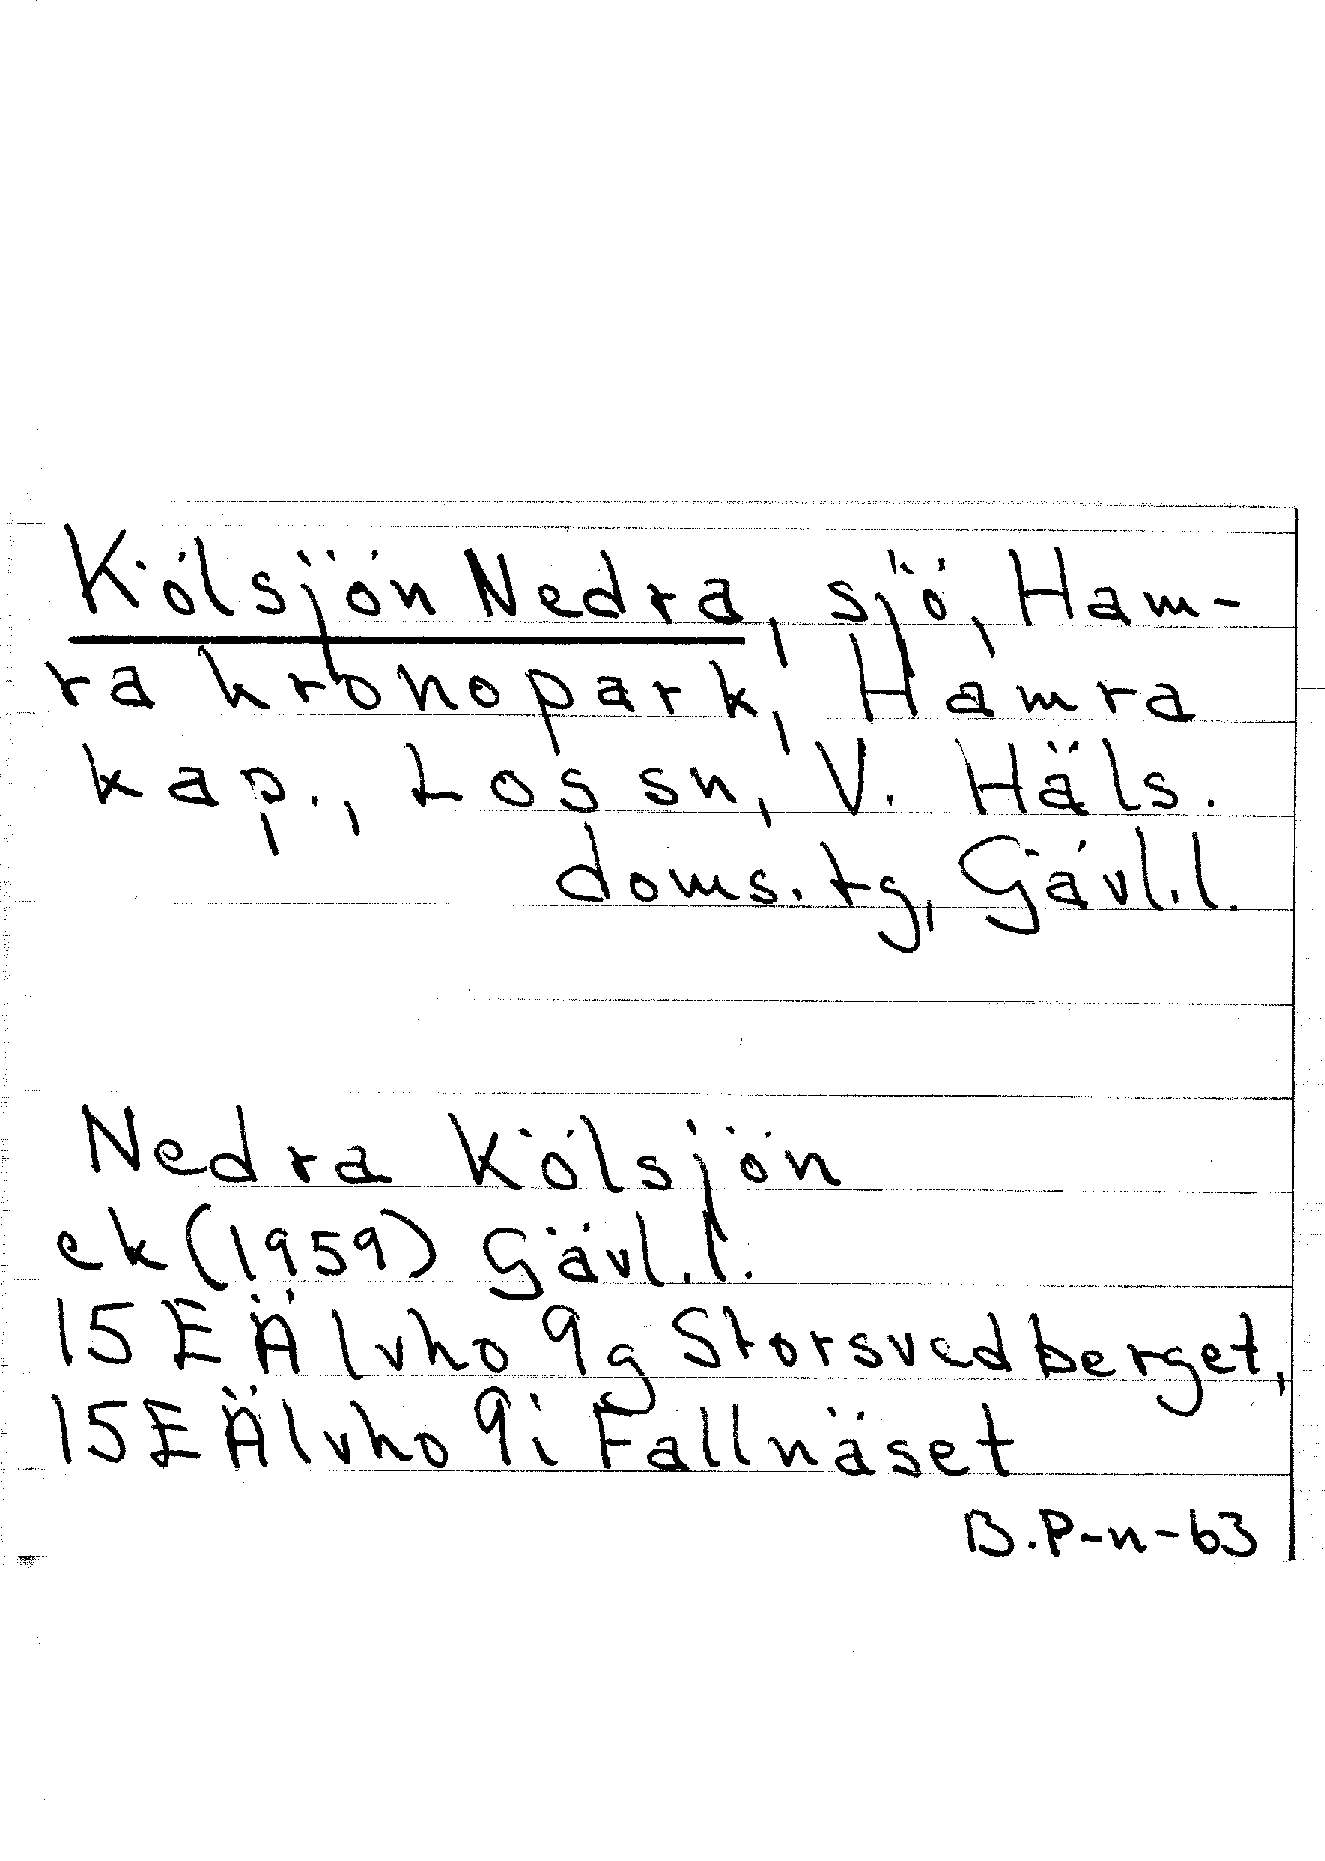 Kölsjön Nedra, sjö, Ham-
ra kronopark, Hamra
kap., Los sn, V. Häls.
doms. tg, Gävl.l.
Nedra Kölsjön
ek (1959) Gävl.l.
15E Älvho 9g Storsvedberget,
15E Älvho 9i Fallnäset
B.P-n-63